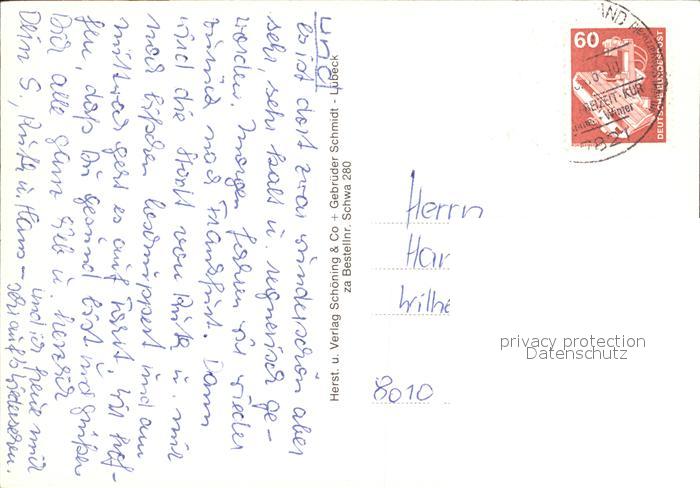 und
es ist dort zwar wunderschön aber
sehr, sehr kalt u. regnerisch ge-
worden. Morgen fahren wir wieder
zurück nach Frankfurt. Dann
wird die Stadt von Ruth u. mir
noch bißchen beschnuppert und am
Mittwoch geht es auf Fahrt. Wir hof-
fen, daß Du gesund bist und grüßen
Dich alle ganz lieb u. herzlich
Dein S., Ruth u. Hans - und ich freue mich
sehr aufs Wiedersehen.
Herst. u. Verlag Schöning & Co + Gebrüder Schmidt - Lübeck
za Bestellnr. Schwa 280
60
DEUTSCHE BUNDESPOST
FREIZEIT-KUR
Winter
782
Herrn
Har
Wilhe
8010
privacy protection
Datenschutz